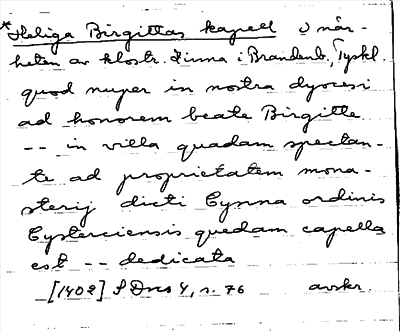 *Heliga Birgittas kapell i när-
heten av klostr. Zinna i Brandenb., Tyskl.
quod nuper in nostra dyocesi
ad honorem beate Birgitte
-- in villa quadam spectan-
te ad proprietatem mona-
sterij dicti Cynna ordinis
Cysterciensis quedam capella
est -- dedicata
[1402] SDns 4, s. 76 avskr.